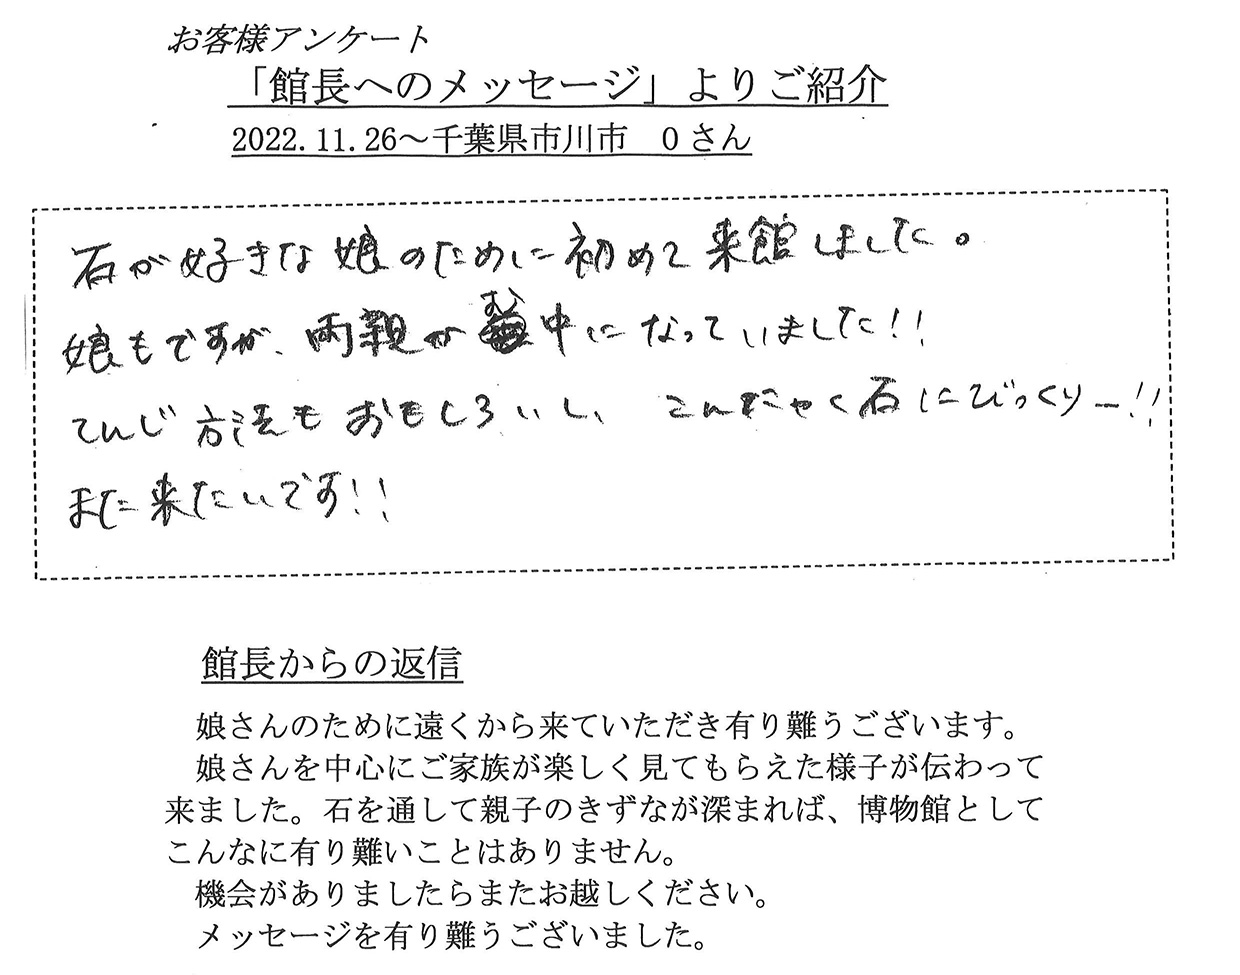 お客様アンケート
「館長へのメッセージ」よりご紹介
2022.11.26～千葉県市川市　Oさん
石が好きな娘のために初めて来館しました。
娘もですが、両親がむ中になっていました!!
てんじ方法もおもしろいし、こんにゃく石にびっくりー!!
また来たいです!!
館長からの返信
娘さんのために遠くから来ていただき有り難うございます。
娘さんを中心にご家族が楽しく見てもらえた様子が伝わって
来ました。石を通して親子のきずなが深まれば、博物館として
こんなに有り難いことはありません。
機会がありましたらまたお越しください。
メッセージを有り難うございました。